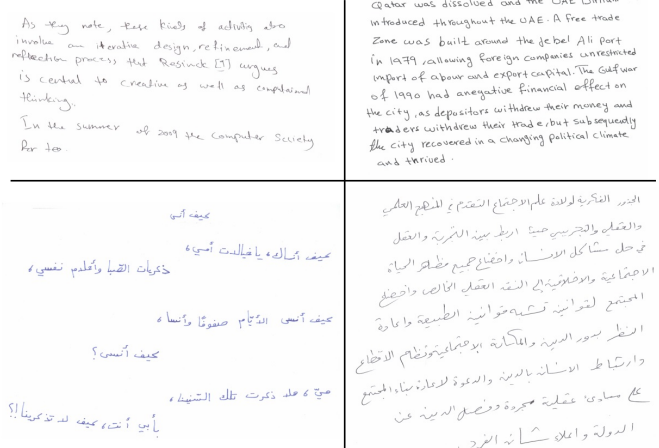 As they note, these kinds of activity also
involve an iterative design, refinement, and
reflection process that Resinck [7] argues
is central to creative as well as computational
thinking.
In the summer of 2009 the Computer Society
for
Qatar was dissolved and the UAE Dirham
introduced throughout the UAE. A free trade
Zone was built around the Jebel Ali Port
in 1979, allowing foreign companies unrestricted
import of abour and export capital. The Gulf war
of 1990 had anegative financial effect on
the city, as depositors withdrew their money and
traders withdrew their trade, but subsequently
the city recovered in a changing political climate
and thrived.
كيف أنسى
كيف أنساك، يا خيالات أمسي،
ذكريات الصبا وأحلام نفسي،
كيف أنسى الأيام صفوًا وأنسا،
كيف أنسى؟
هيّ، هلا ذكرت تلك السنينا،
بأبي أنت، كيف لا تذكرينا!؟
الجذور الفكرية لولادة علم الاجتماع التقدم في المنهج العلمي
والعقلي والتجريبي حيث اربط بين التجربة والعقل
في حل مشاكل الانسان واخضاع جميع مظاهر الحياة
الاجتماعية والاخلاقية إلى النقد العقلي الخالص واخضاع
المجتمع لقوانين تشبه قوانين الطبيعة واعادة
النظر بدور الدين والمكانة الاجتماعية ونظام الاقطاع
وارتباط الانسان بالدين والدعوة لاعادة بناء المجتمع
على مبادئ عقلية مجردة وفصل الدين عن
الدولة واعلاء شأن الفرد